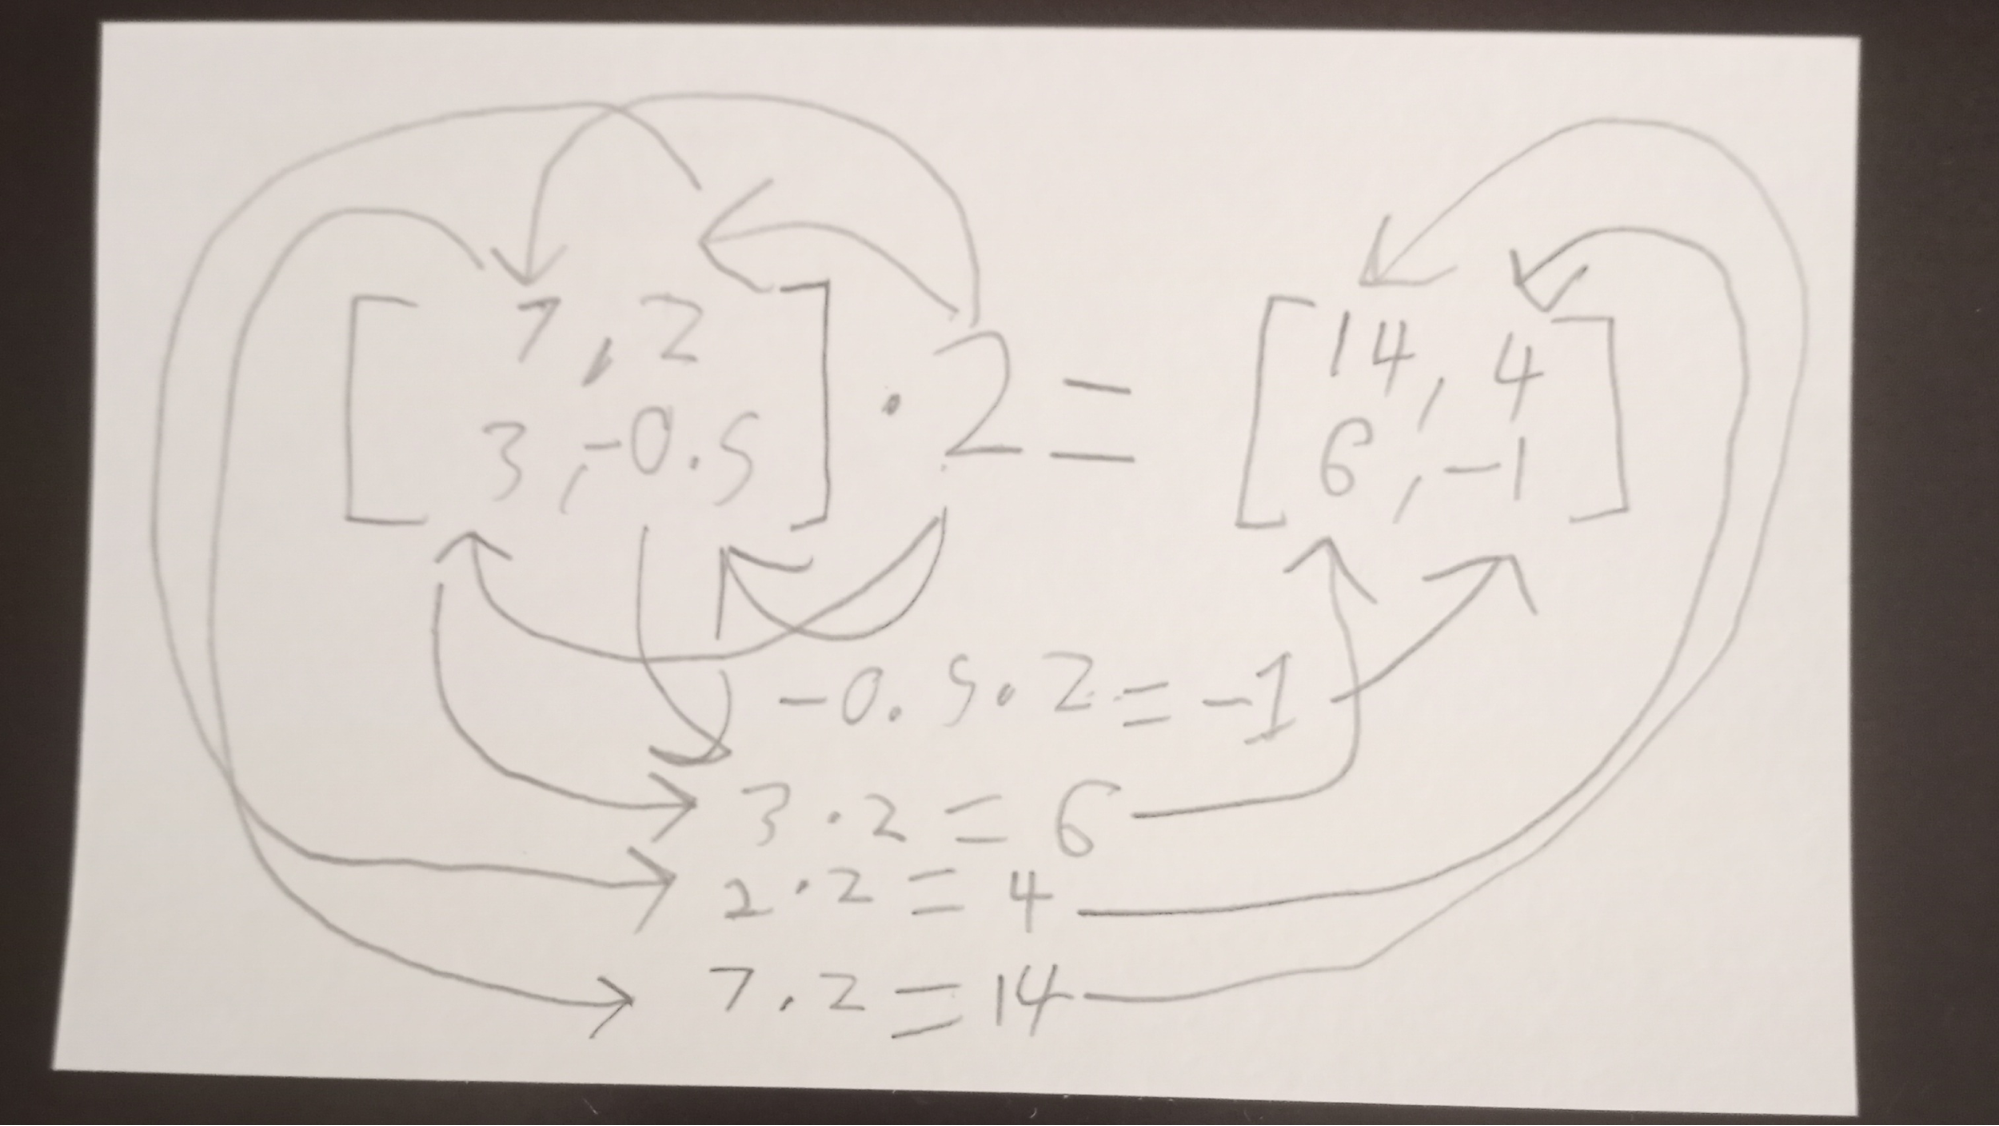 [7, 2
3, -0.5] · 2 = [14, 4
6, -1]
-0.5 · 2 = -1
3 · 2 = 6
2 · 2 = 4
7 · 2 = 14